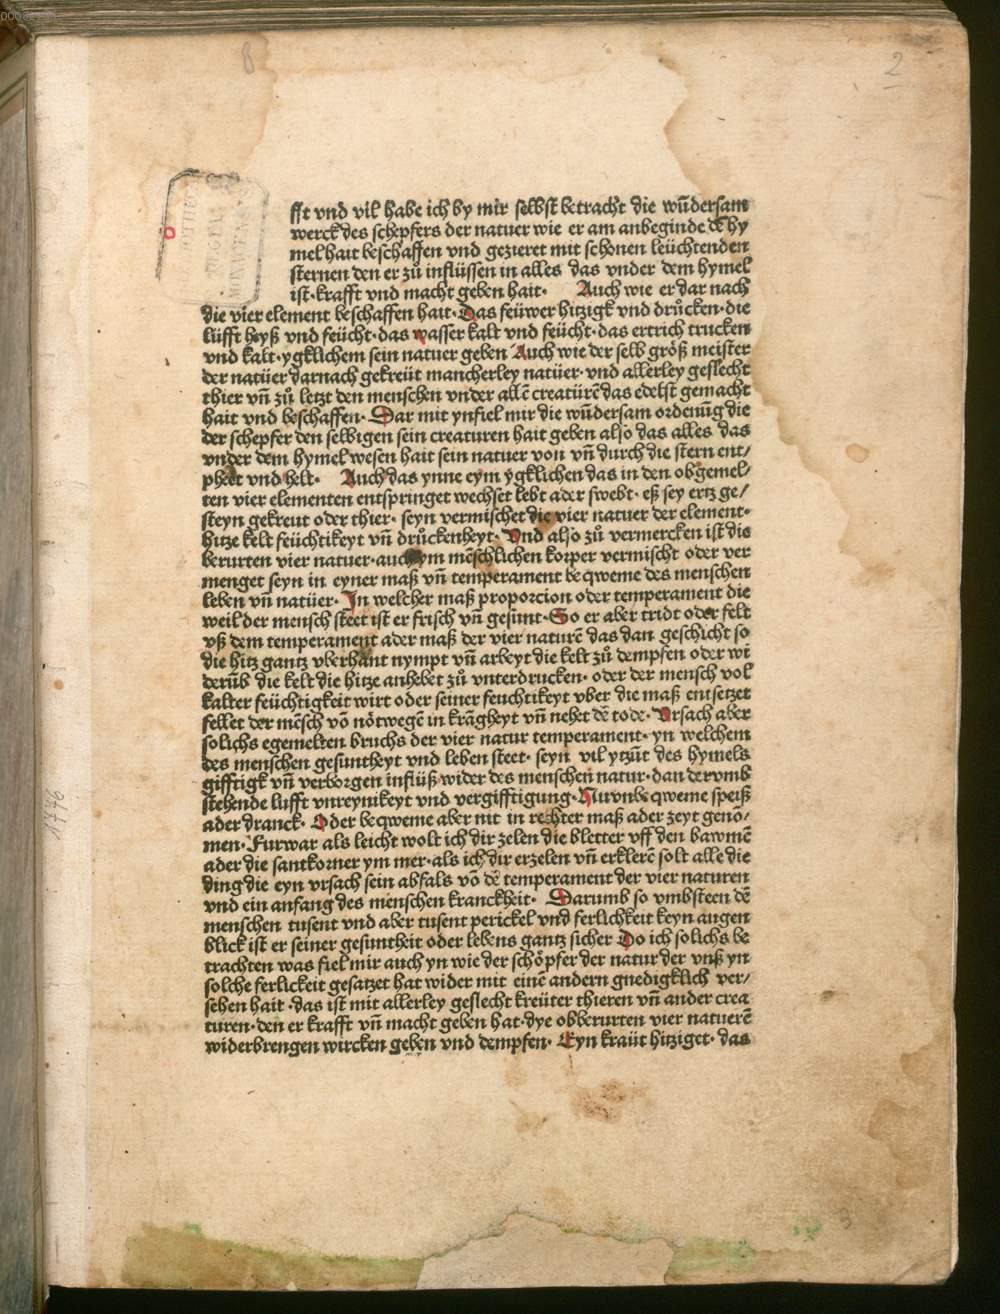 8
2
fft vnd vil habe ich by mir selbst betracht die wūdersam
werck des schepfers der natuer wie er am anbeginde dē hy
mel hait beschaffen vnd gezieret mit schonen leüchtenden
sternen den er zů inflüssen in alles das vnder dem hymel
ist· krafft vnd macht geben hait· Auch wie er dar nach
die vier element beschaffen hait· Das feüwer hitzigk vnd drůcken· die
lüfft heyß vnd feücht· das wasser kalt vnd feücht· das ertrich trucken
vnd kalt· ygklichem sein natuer geben Auch wie der selb größ meister
der natüer darnach gekreüt mancherley natüer· vnd allerley geslecht
thier vn̄ zů letzt den menschen vnder allē creatürē das edelst gemacht
hait vnd beschaffen· Dar mit ynfiel mir die wūdersam ordenūg die
der schepfer den selbigen sein creaturen hait geben also das alles das
vnder dem hymel wesen hait sein natuer von vn̄ durch die stern ent/
phect vnd helt· Auch das ynne eym ygklichen das in den obgemel/
ten vier elementen entspringet wechset lebt ader swebt· eß sey ertz ge/
steyn gekreut oder thier· seyn vermischet die vier natuer der element·
hitze kelt feüchtikeyt vn̄ drůckenheyt· Vnd also zů vermercken ist die
berurten vier natuer· auch ym mēschlichen korper vermischt oder ver
menget seyn in eyner maß vn̄ temperament beqweme des menschen
leben vn̄ natüer· In welcher maß proporcion oder temperament die
weil der mensch steet ist er frisch vn̄ gesunt· So er aber tridt oder felt
vß dem temperament ader maß der vier naturē das dan geschicht so
die hitz gantz vberhant nympt vn̄ arbeyt die kelt zů dempfen oder wi
derūb die kelt die hitze anhebet zů vnterdrucken· oder der mensch vol
kalter feüchtigkeit wirt oder seiner feuchtikeyt vber die maß entsetzet
fellet der mēsch vō nötwegē in krāgheyt vn̄ nehet dē tode· Vrsach aber
solichs egemelten bruchs der vier natur temperament· yn welchem
des menschen gesuntheyt vnd leben steet· seyn vil ytzūt des hymels
gifftigk vn̄ verborgen inflüß wider des menschen natur· dan der vmb
stehende lufft vnreynikeyt vnd vergifftigung· Nu vnbeqweme speiß
ader dranck· Oder beqweme aber nit in rechter maß ader zeyt genō/
men· Furwar als leicht wolt ich dir zelen die bletter vff den bawmē
ader die santkorner ym mer· als ich dir erzelen vn̄ erklerē solt alle die
ding die eyn vrsach sein abfals vō dē temperament der vier naturen
vnd ein anfang des menschen kranckheit· Darumb so vmbsteen dē
menschen tusent vnd aber tusent perickel vnd ferlichkeit keyn augen
blick ist er seiner gesuntheit oder lebens gantz sicher Do ich solichs be
trachten was fiel mir auch yn wie der schöpfer der natur der vnß yn
solche ferlickeit gesatzet hat wider mit einē andern gnedigklich ver/
sehen hait· das ist mit allerley geslecht kreüter thieren vn̄ ander crea
turen· den er krafft vn̄ macht geben hat· dye obberurten vier natuerē
widerbrengen wircken geben vnd dempfen· Eyn kraüt hitziget· das
1776
3